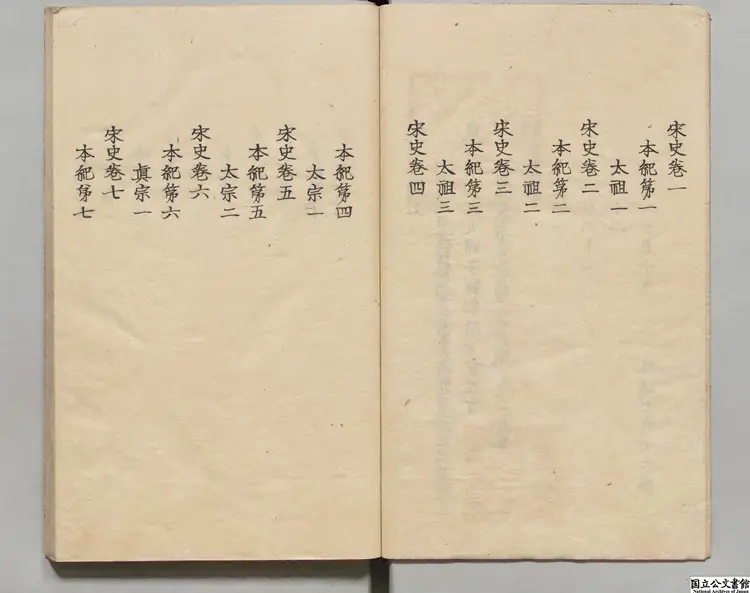 宋史卷一
本紀第一
太祖一
宋史卷二
本紀第二
太祖二
宋史卷三
本紀第三
太祖三
宋史卷四
本紀第四
太宗一
宋史卷五
本紀第五
太宗二
宋史卷六
本紀第六
眞宗一
宋史卷七
本紀第七
国立公文書館
National Archives of Japan